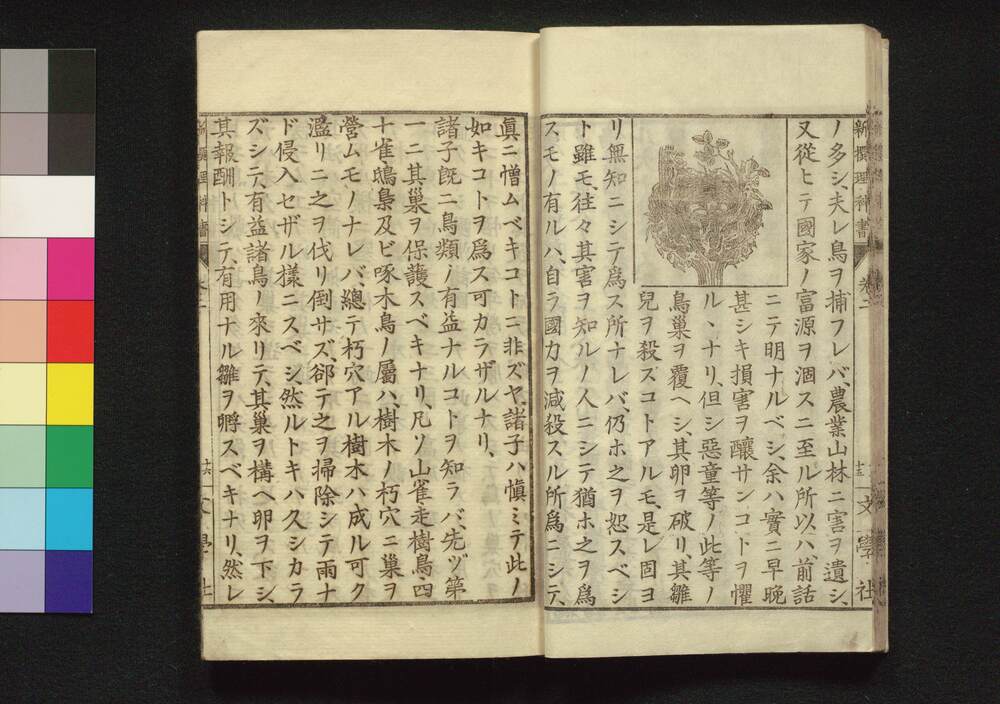 新撰理科書 卷二 十五 文學社
ノ多シ、夫レ鳥ヲ捕フレバ、農業山林ニ害ヲ遺シ、
又從ヒテ國家ノ富源ヲ涸スニ至ル所以ハ、前話
ニテ明ナルベシ、余ハ實ニ早晩
甚シキ損害ヲ釀サンコトヲ懼
ルヽナリ、但シ惡童等ノ此等ノ
鳥巢ヲ覆ヘシ、其卵ヲ破リ、其雛
兒ヲ殺ズコトアルモ、是レ固ヨ
リ無知ニシテ爲ス所ナレバ、仍ホ之ヲ恕スベシ
ト雖モ、往々其害ヲ知ルノ人ニシテ猶ホ之ヲ爲
スモノ有ルハ、自ラ國力ヲ減殺スル所爲ニシテ、
眞ニ憎ムベキコトニ非ズヤ、諸子ハ愼ミテ此ノ
如キコトヲ爲ス可カラザルナリ、
諸子既ニ鳥類ノ有益ナルコトヲ知ラバ、先ヅ第
一ニ其巢ヲ保護スベキナリ、凡ソ山雀・走樹鳥・四
十雀・鴟梟及ビ啄木鳥ノ屬ハ、樹木ノ朽穴ニ巢ヲ
營ムモノナレバ、總テ朽穴アル樹木ハ成ル可ク
濫リニ之ヲ伐リ倒サズ、郤テ之ヲ掃除シテ雨ナ
ド侵入セザル樣ニスベシ、然ルトキハ久シカラ
ズシテ、有益諸鳥ノ來リテ、其巢ヲ構ヘ卵ヲ下シ、
其報酬トシテ、有用ナル雛ヲ孵スベキナリ、然レ
新撰理科書 卷二 十六 文學社